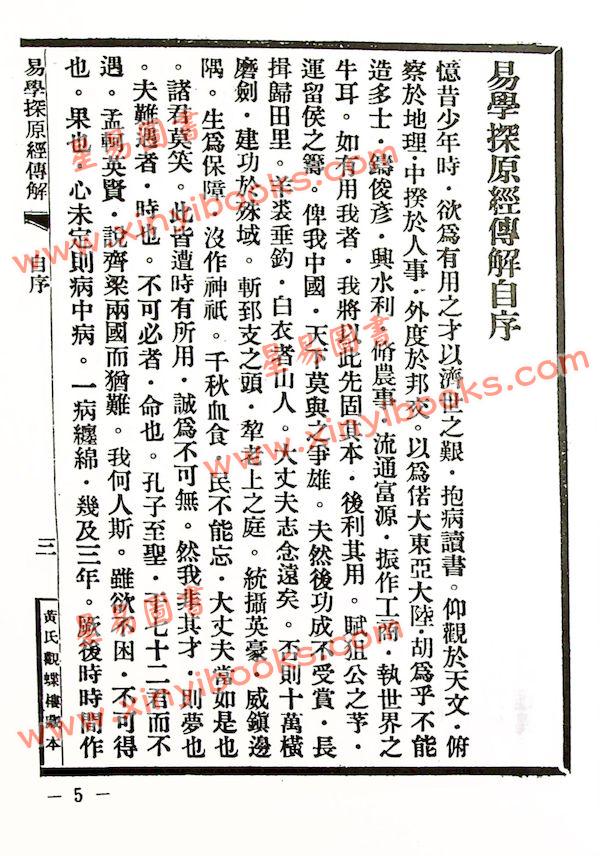 易學探原經傳解自序
憶昔少年時．欲爲有用之才以濟世之艱．抱病讀書。仰觀於天文．俯
察於地理．中揆於人事．外度於邦交。以爲偌大東亞大陸．胡爲乎不能
造多士．鑄俊彥．興水利．脩農事．流通富源．振作工商．執世界之
牛耳。如有用我者．我將以此先固其本．後利其用。賦狙公之芧．
運留侯之籌。俾我中國．天下莫與之爭雄。夫然後功成不受賞．長
揖歸田里。羊裘垂釣．白衣者山人。大丈夫志念遠矣。否則十萬橫
磨劍．建功於殊域。斬郅支之頭．犁老上之庭。統攝英豪．威鎮邊
隅。生爲保障．沒作神祇。千秋血食．民不能忘．大丈夫當如是也
。諸君莫笑。此皆遭時有所用．誠爲不可無。然我非其才．則夢也
。夫難遇者．時也。不可必者．命也。孔子至聖．干七十二君而不
遇。孟軻英賢．說齊梁兩國而猶難。我何人斯。雖欲不困．不可得
也。果也。心未定則病中病。一病纏綿．幾及三年。厥後時時間作
易學探原經傳解
自序
三
黃氏觀蝶樓
本
— 5 —
星易圖書
www.xinyibooks.com
星易圖書
www.xinyibooks.com
星易圖書
www.xinyibooks.com